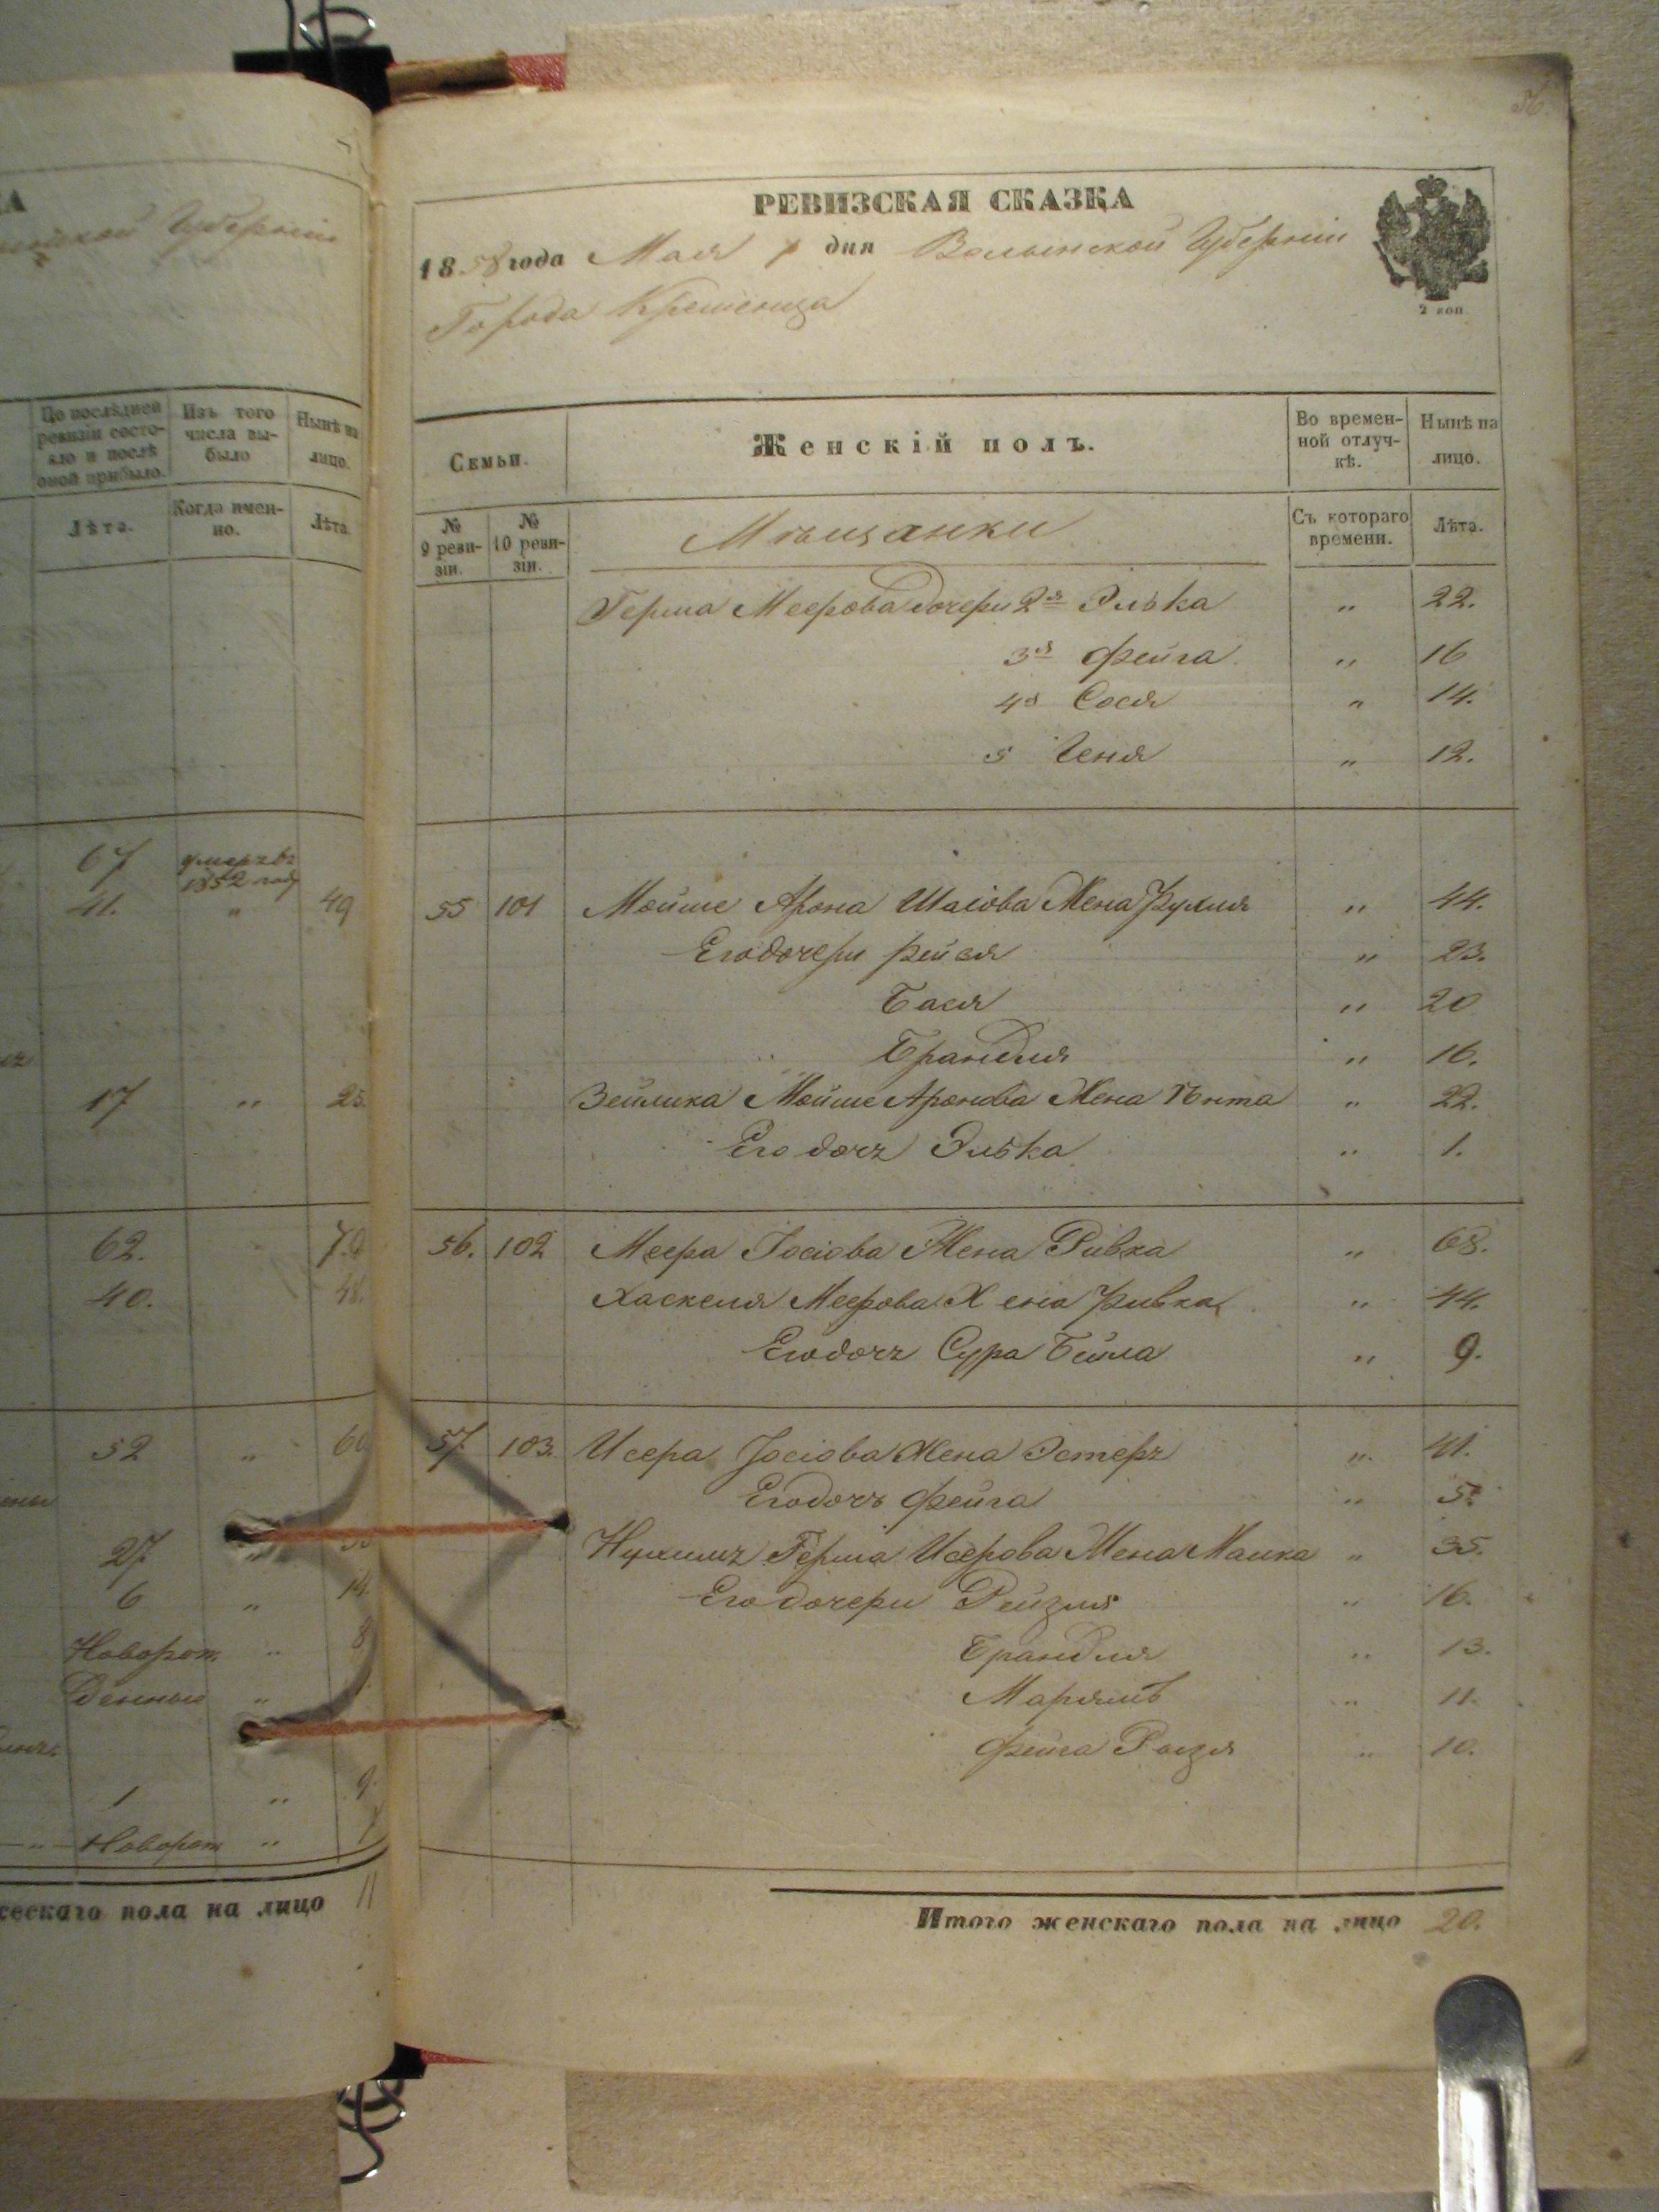 КА
Губерніи
По послѣдней ревизіи состояло и послѣ оной прибыло.
Изъ того числа выбыло
Нынѣ на лицо.
Лѣта.
Когда именно.
Лѣта.
67 умеръ въ 1852 году
41. " 49
17 " 25.
62. 70
40. 48.
52 " 60
27
6 " 14.
Новорож " 8
Денные "
1 " 9.
" Новорож "
ческаго пола на лицо 11
56.
РЕВИЗСКАЯ СКАЗКА
1858 года Мая дня Волынской Губерніи
2 коп.
Города Кременца
Семьи.
Женскій полъ.
Во временной отлучкѣ.
Нынѣ на лицо.
№ 9 ревизіи.
№ 10 ревизіи.
Мѣщанки
Съ котораго времени.
Лѣта.
Герша Меерова дочери 2я Элька " 22.
3я Фейга " 16
4я Сося " 14.
5 Геня " 12.
55 101 Мойше Арона Шаіова Жена Рухля " 44.
Его дочери Рейся " 23.
Бася " 20
Брандля " 16.
Зейлика Мойше Аронова Жена Ента " 22.
Его дочь Элька " 1.
56. 102 Меера Іосіова Жена Ривка " 68.
Хаскеля Меерова Жена Ривка " 44.
Его дочь Сура Бейла " 9.
57. 103. Исера Іосіова Жена Эстеръ " 41.
Его дочь Фейга " 5.
Нухимъ Герша Исерова Жена Малка " 35.
Его дочери Рейзля " 16.
Брандля " 13.
Марямъ " 11.
Фейга Рызя " 10.
Итого женскаго пола на лицо 20.